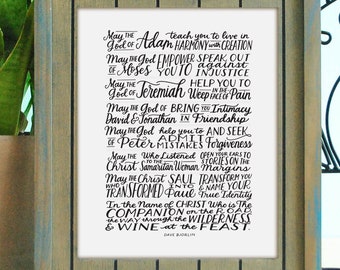 May the God of Adam teach you to live in HARMONY with CREATION
May the God of Moses EMPOWER YOU TO SPEAK OUT against INJUSTICE
May the God of Jeremiah HELP YOU TO Weep IN THE FACE of Pain
May the God of David & Jonathan BRING YOU Intimacy in Friendship
May the God of Peter help you to ADMIT MISTAKES AND SEEK Forgiveness
May the Christ Who Listened TO THE Samaritan Woman OPEN YOUR EARS TO STORIES ON THE Margins
May the CHRIST WHO TRANSFORMED SAUL INTO Paul TRANSFORM YOU AND YOUR NAME True Identity
In the Name of CHRIST Who is The
COMPANION on the ROAD
the WAY through the WILDERNESS
& WINE at the FEAST.
DAVE BJORLIN